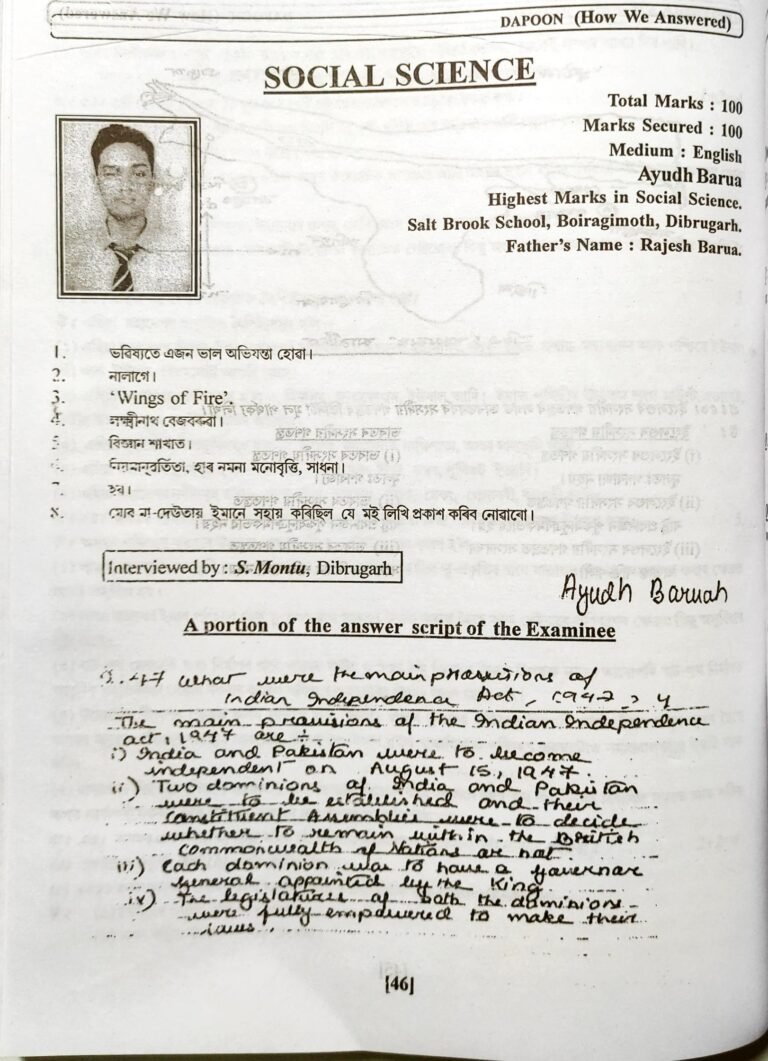 DAPOON (How We Answered)
SOCIAL SCIENCE
Total Marks : 100
Marks Secured : 100
Medium : English
Ayudh Barua
Highest Marks in Social Science.
Salt Brook School, Boiragimoth, Dibrugarh.
Father's Name : Rajesh Barua.
1. ভৱিষ্যতে এজন ভাল অভিযন্তা হোৱা।
2. নালাগে।
3. 'Wings of Fire'.
4. লক্ষ্মীনাথ বেজবৰুৱা।
5 বিজ্ঞান শাখাত।
নিয়মানুৱৰ্তিতা, হাৰ নমনা মনোবৃত্তি, সাধনা।
7. হয়।
৪. মোৰ মা-দেউতায় ইমানে সহায় কৰিছিল যে মই লিখি প্ৰকাশ কৰিব নোৱাৰো।
Interviewed by : S. Montu, Dibrugarh
Ayudh Baruah
A portion of the answer script of the Examinee
Q. 47 What were the main provisions of
Indian Independence Act, 1947. 4
The main provisions of the Indian Independence
act, 1947 are :-
i) India and Pakistan were to become
independent on August 15, 1947.
ii) Two dominions of India and Pakistan
were to be established and their
constituent Assemblies were to decide
whether to remain within the British
commonwealth of Nations are not.
iii) Each dominion was to have a Governor
General appointed by the King.
iv) The legislatures of both the dominions
were fully empowered to make their
laws.
[46]